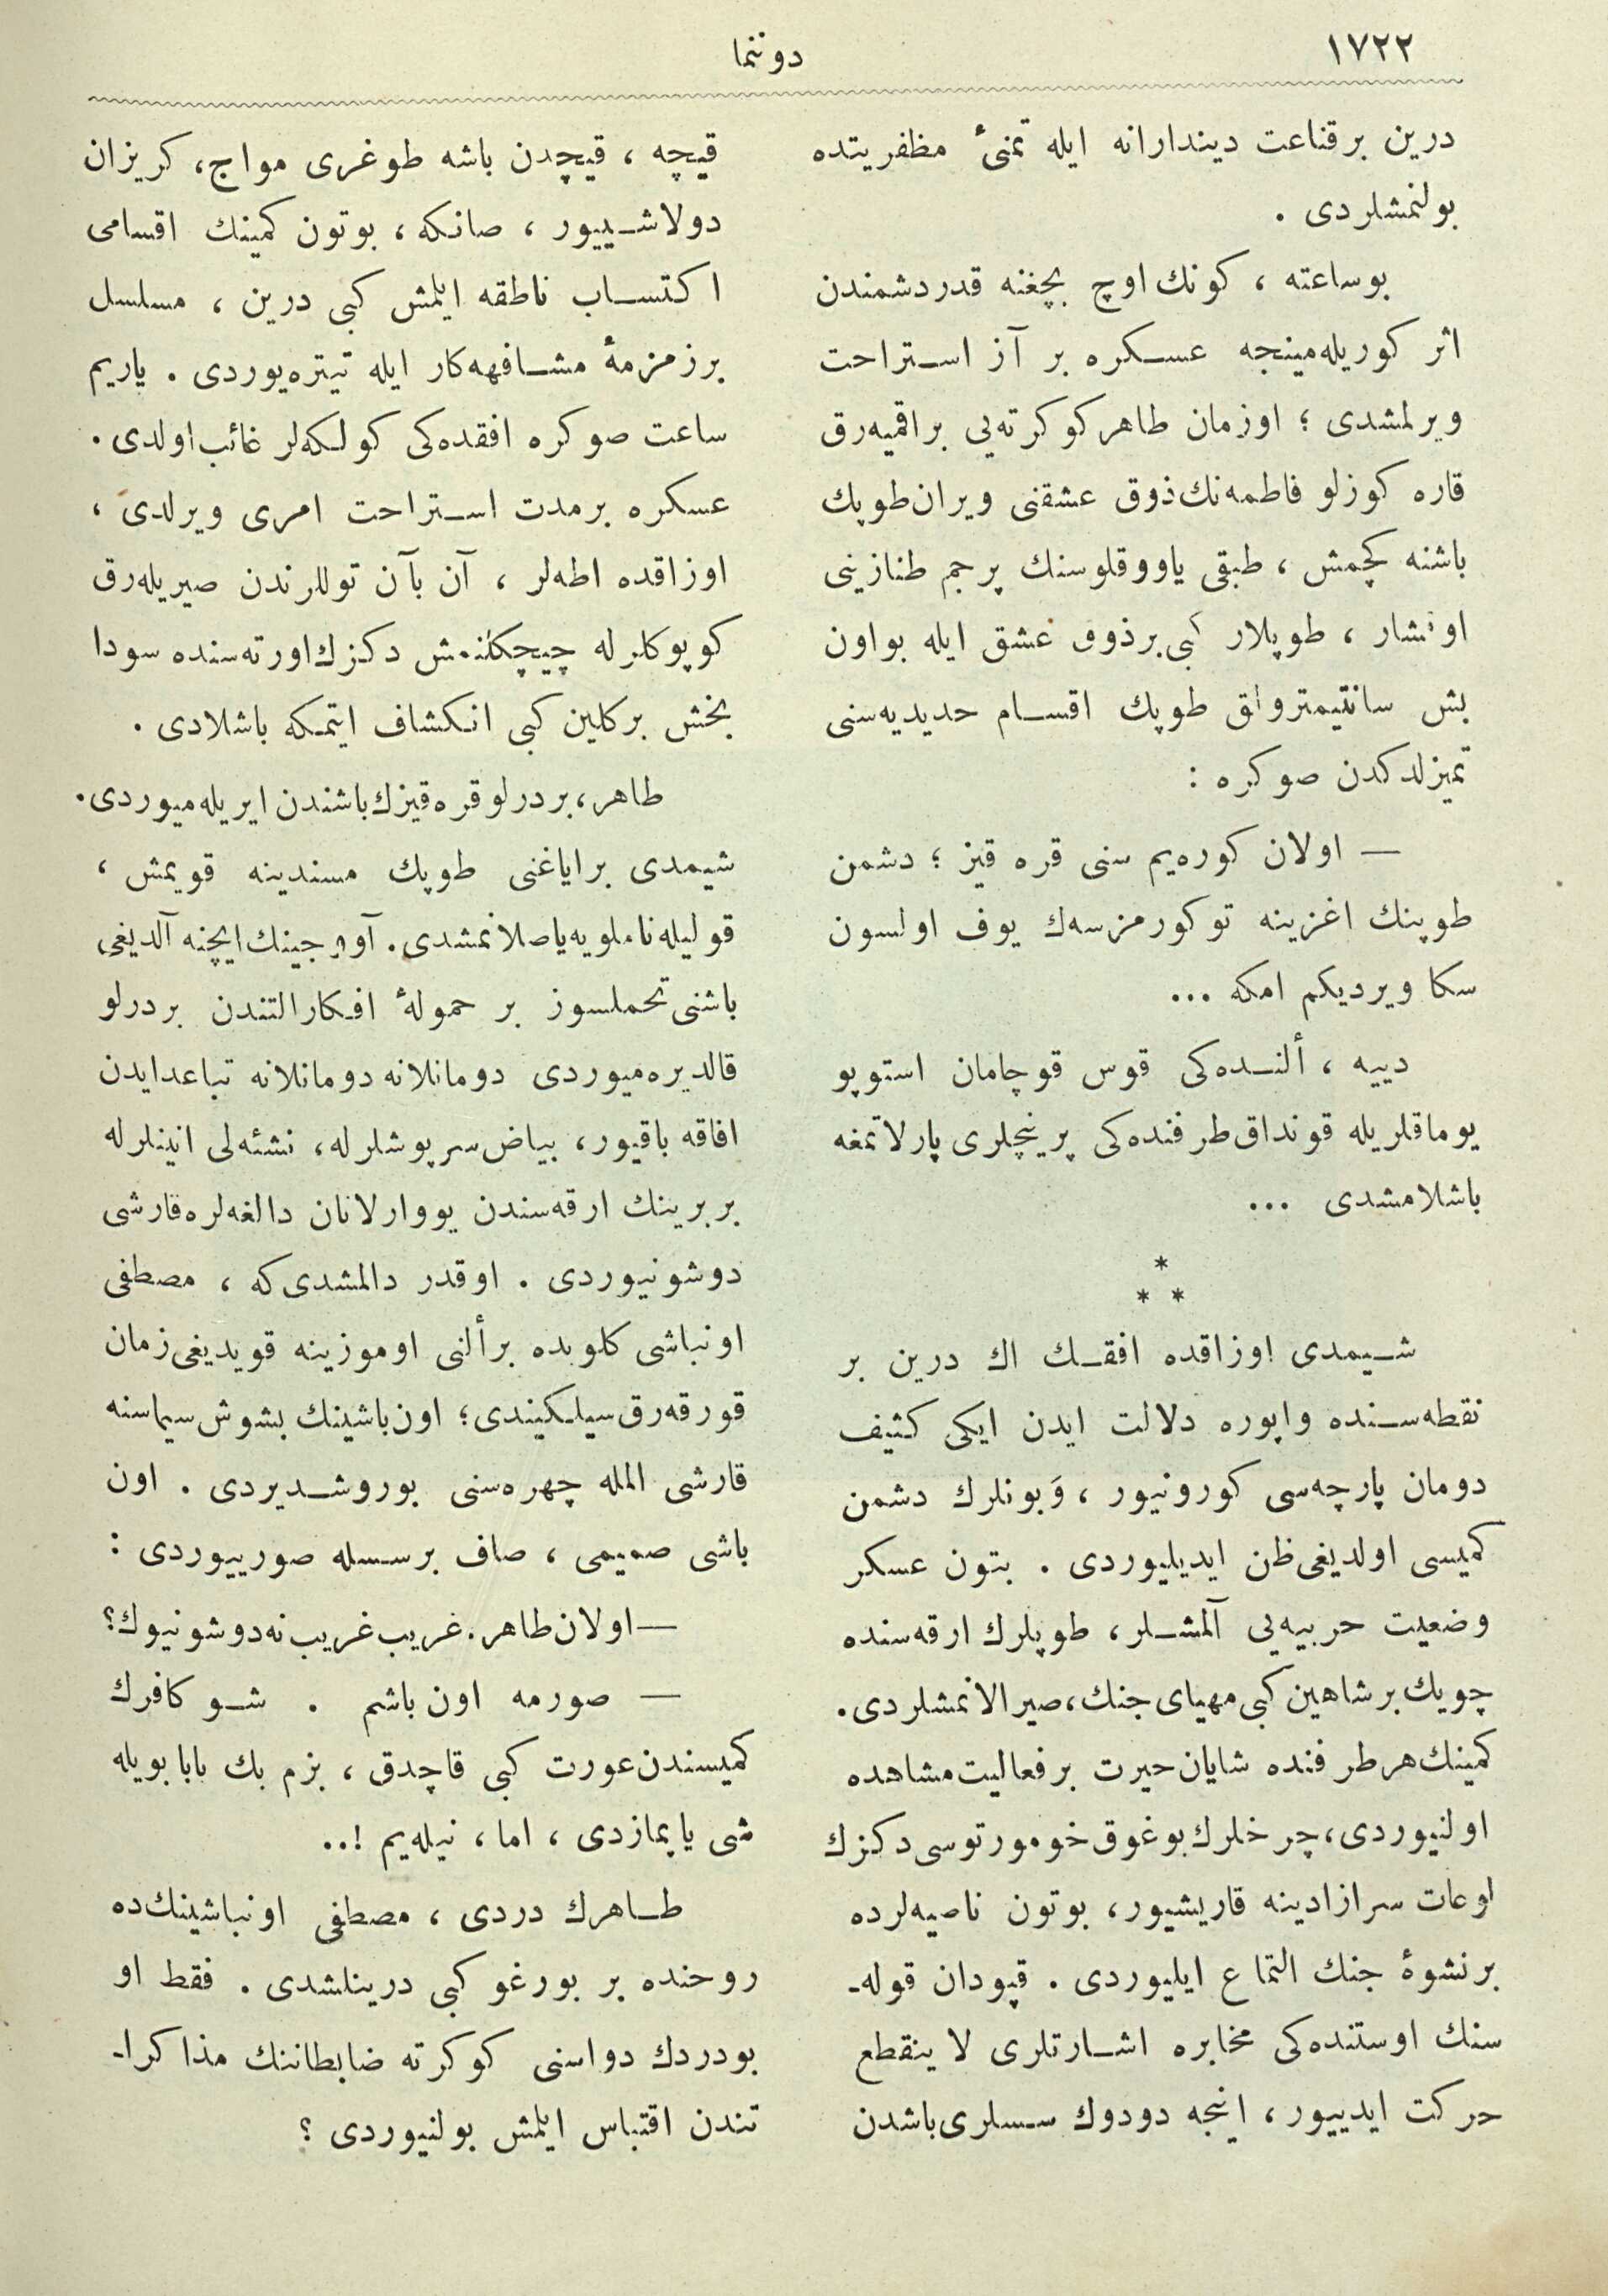 ١٧٢٢
دوننما
درین بر قناعت دیندارانه ایله تمنیٔ مظفریتده
بولنمشلردی .
بوساعته ، کونك اوچ بچغنه قدر دشمندن
اثر کوریله‌مینجه عسکره بر آز استراحت
ویرلمشدی ؛ اوزمان طاهر کوکرته‌یی براقمیه‌رق
قاره کوزلو فاطمه‌نك ذوق عشقنی ویران طوپك
باشنه کچمش ، طبقی یاووقلوسنك پرچم طنازینی
اوقشار ، طوپلار کبی بر ذوق عشق ایله بو اون
بش سانتیمترولق طوپك اقسام حدیدیه‌سنی
تمیزلدکدن صوکره :
— اولان کوره‌یم سنی قره قیز ؛ دشمن
طوپنك اغزینه توکورمزسه‌ك یوف اولسون
سکا ویردیکم امکه ...
دییه ، ألنده‌کی قوس قوجامان استوپو
یوماقلریله قونداق طرفنده‌کی پرینچلری پارلاتمغه
باشلامشدی ...
*
* *
شیمدی اوزاقده افقك اك درین بر
نقطه‌سنده واپوره دلالت ایدن ایکی کثیف
دومان پارچه‌سی کورونیور ، وَبونلرك دشمن
کمیسی اولدیغی ظن ایدیلیوردی . بتون عسکر
وضعیت حربیه‌یی آلمشلر ، طوپلرك ارقه‌سنده
چویك بر شاهین کبی مهیای جنك ، صیرالانمشلردی .
کمینك هر طرفنده شایان حیرت بر فعالیت مشاهده
اولنیوردی ، چرخلرك بوغوق خومورتوسی دکزك
لوعات سرازادینه قاریشیور ، بوتون ناصیه‌لرده
بر نشوهٔ جنك التماع ایلیوردی . قپودان قوله‌ـ
سنك اوستنده‌کی مخابره اشارتلری لاینقطع
حرکت ایدییور ، اینجه دودوك سسلری باشدن
قیچه ، قیچدن باشه طوغری مواج ، کریزان
دولاشییور ، صانکه ، بوتون کمینك اقسامی
اکتساب ناطقه ایلمش کبی درین ، مسلسل
برزمزمهٔ مشافهه‌کار ایله تیتره‌یوردی . یاریم
ساعت صوکره افقده‌کی کولکه‌لر غائب اولدی .
عسکره برمدت استراحت امری ویرلدی ،
اوزاقده اطه‌لر ، آن بآن توللرندن صیریله‌رق
کوپوکلرله چیچکلنمش دکزك اورته‌سنده سودا
بخش برکلین کبی انکشاف ایتمکه باشلادی .
طاهر ، بردرلو قره قیزك باشندن ایریله‌میوردی .
شیمدی برایاغنی طوپك مسندینه قویمش ،
قولیله ناملویه یاصلانمشدی . آووجینك ایچنه آلدیغی
باشنی تحملسوز بر حمولهٔ افکار التندن بردرلو
قالدیره‌میوردی دومانلانه دومانلانه تباعد ایدن
افاقه باقیور ، بیاض سرپوشلرله ، نشئه‌لی انینلرله
بربرینك ارقه‌سندن یووارلانان دالغه‌لره قارشی
دوشونیوردی . اوقدر دالمشدی که ، مصطفی
اونباشی کلوبده برألنی اوموزینه قویدیغی زمان
قورقه‌رق سیلکیندی ؛ اون باشینك بشوش سیماسنه
قارشی المله چهره‌سنی بوروشدیردی . اون
باشی صمیمی ، صاف برسسله صورییوردی :
— اولان طاهر . غریب غریب نه دوشونیوك ؟
— صورمه اون باشم . شو کافرك
کمیسندن عورت کبی قاچدق ، بزم بك بابا بویله
شی یاپمازدی ، اما ، نیله‌یم !..
طاهرك دردی ، مصطفی اونباشینك‌ده
روحنده بر بورغو کبی درینلشدی . فقط او
بودردك دواسنی کوکرته ضابطاننك مذاکراـ
تندن اقتباس ایلمش بولنیوردی ؟